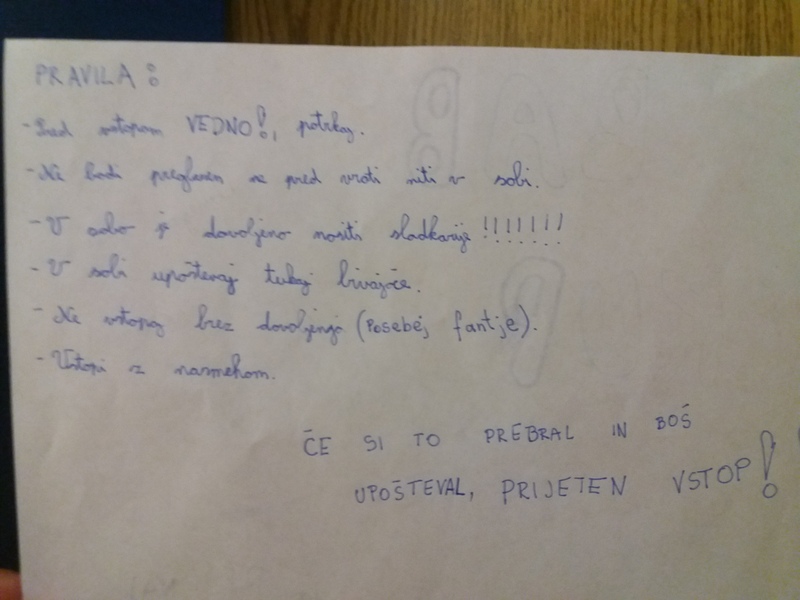 PRAVILA:
- Pred vstopom VEDNO!, potrkaj.
- Ne bodi preglasen ne pred vrati niti v sobi.
- V sobo je dovoljeno nositi sladkarije!!!!!!!
- V sobi upoštevaj tukaj bivajoče.
- Ne vstopaj brez dovoljenja (posebej fantje).
- Vstopi z nasmehom.
ČE SI TO PREBRAL IN BOŠ
UPOŠTEVAL, PRIJETEN VSTOP!